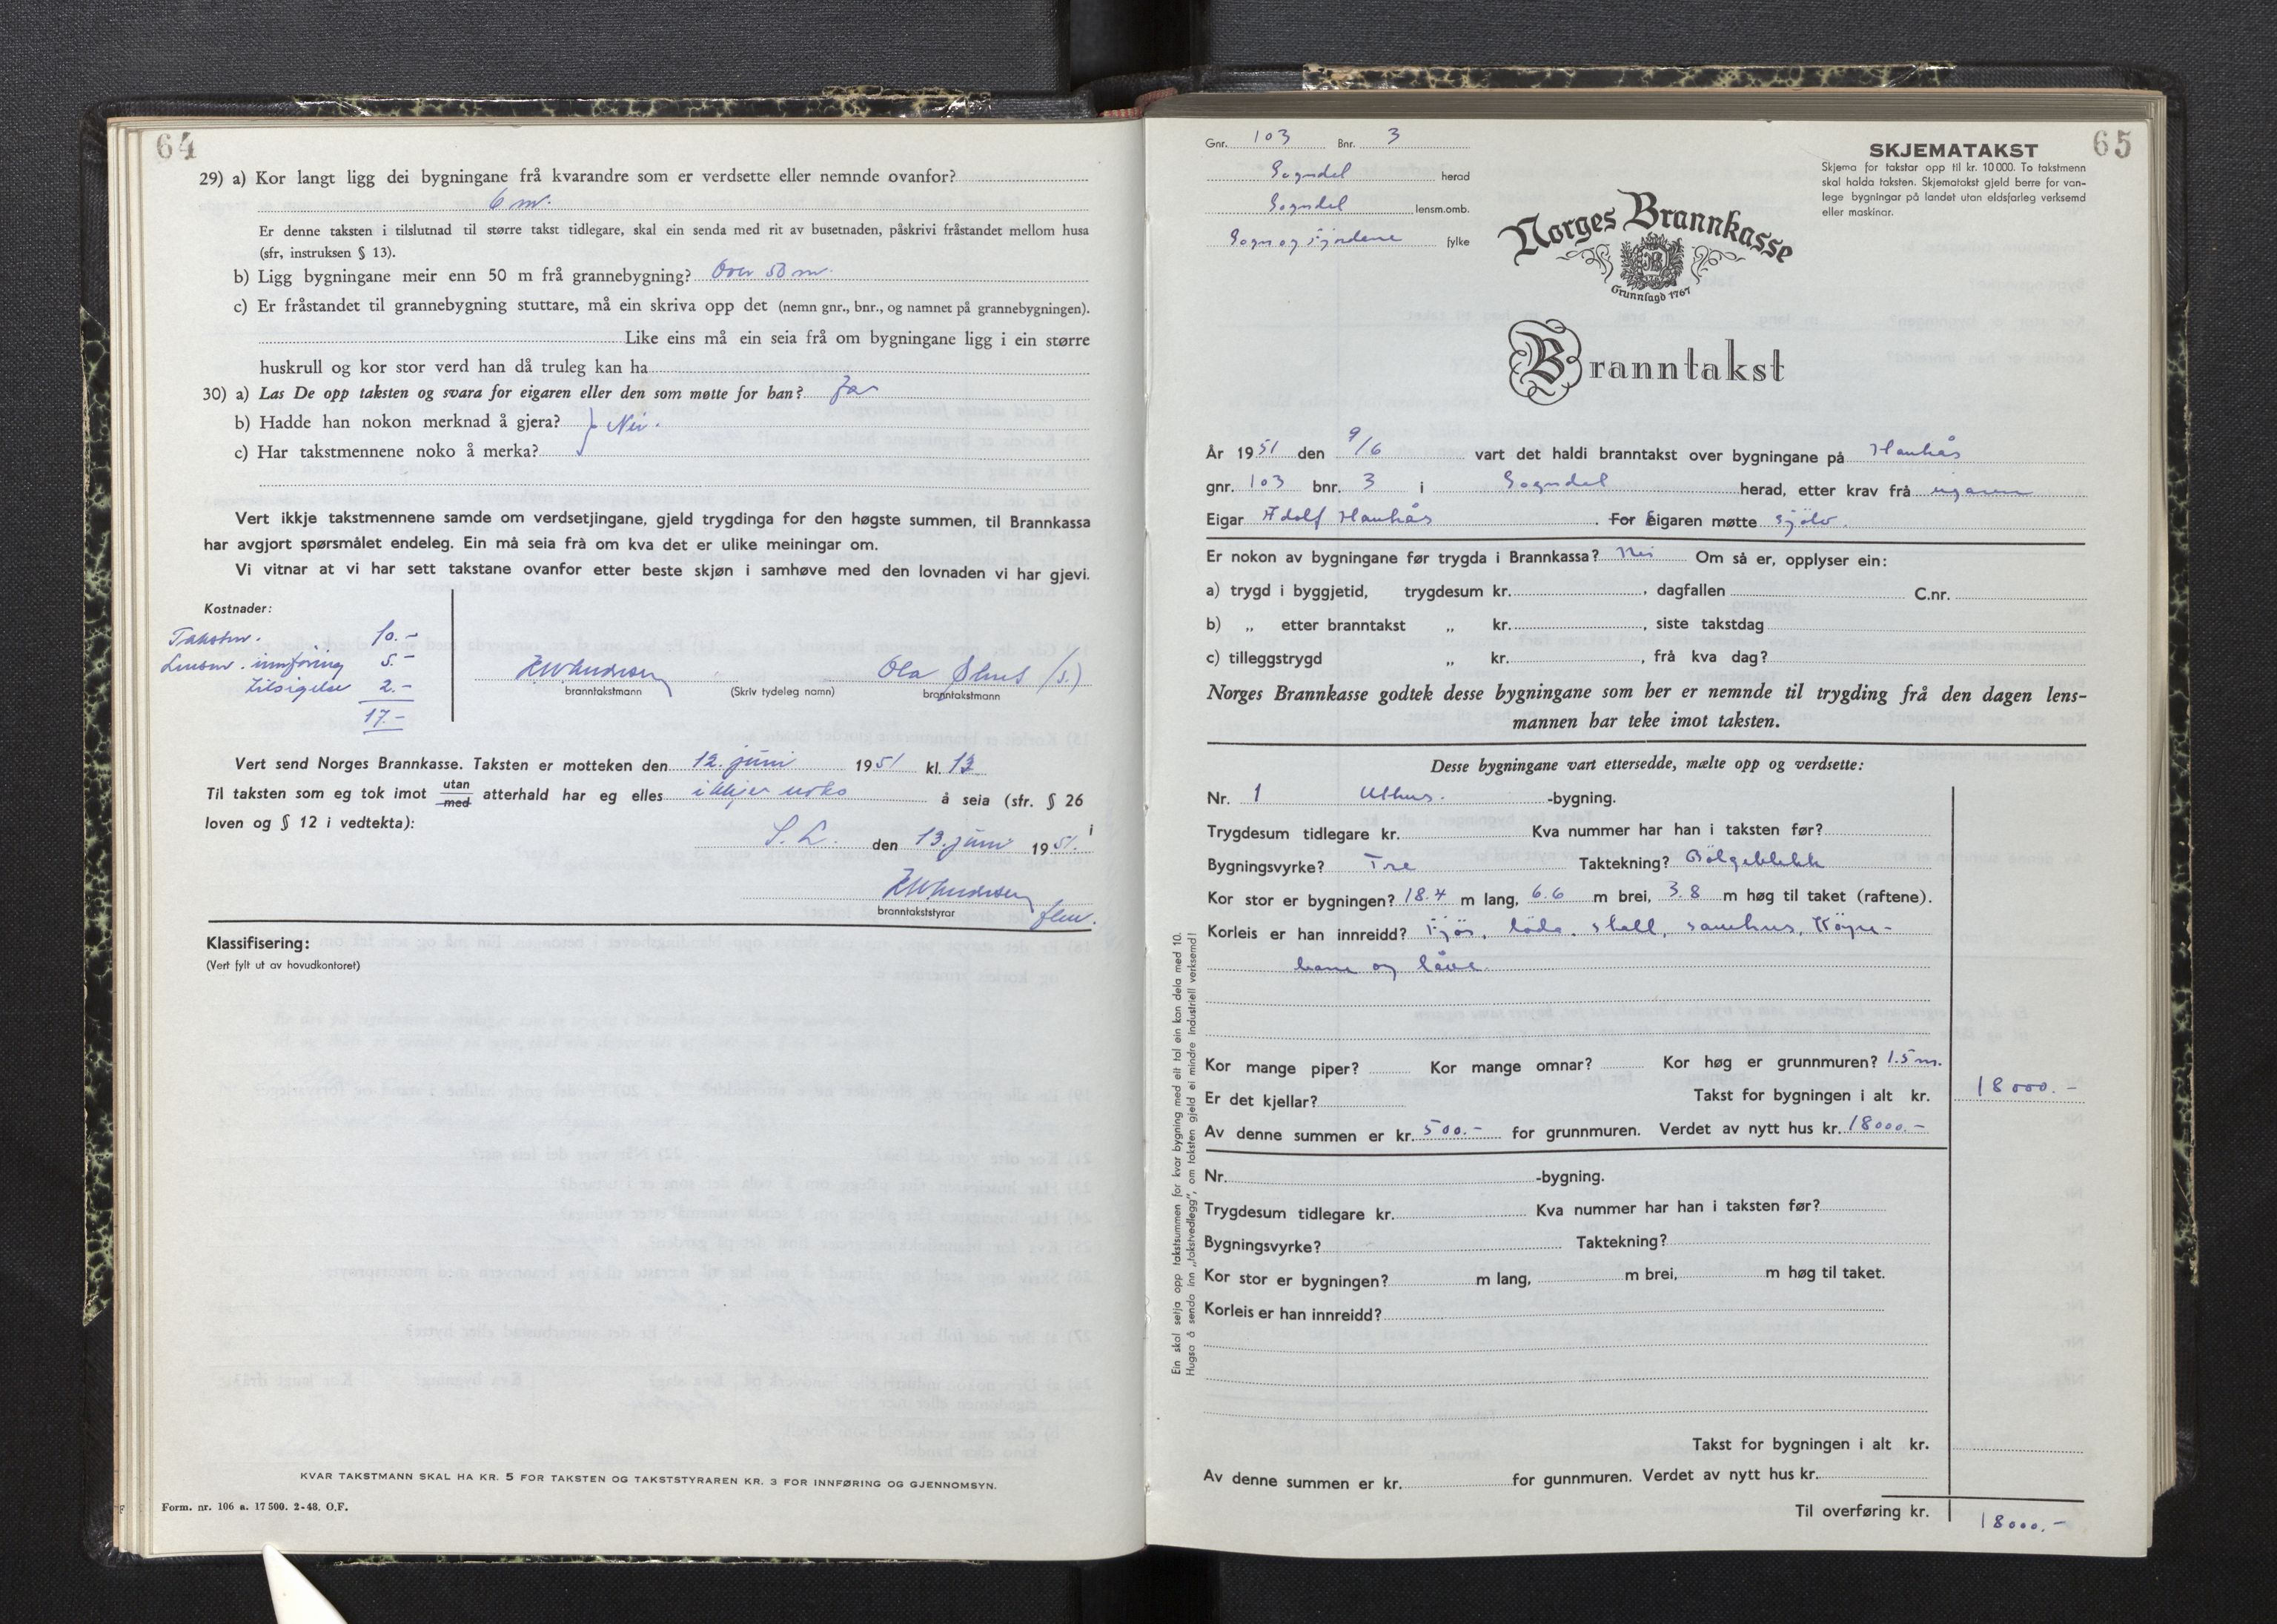 64
29) a) Kor langt ligg dei bygningane frå kvarandre som er verdsette eller nemnde ovanfor?
6 m.
Er denne taksten i tilslutnad til større takst tidlegare, skal ein senda med rit av busetnaden, påskrivi fråstandet mellom husa
(sfr, instruksen § 13).
b) Ligg bygningane meir enn 50 m frå grannebygning? Over 50 m.
c) Er fråstandet til grannebygning stuttare, må ein skriva opp det (nemn gnr., bnr., og namnet på grannebygningen).
Like eins må ein seia frå om bygningane ligg i ein større
huskrull og kor stor verd han då truleg kan ha
30) a) Las De opp taksten og svara for eigaren eller den som møtte for han? Ja
b) Hadde han nokon merknad å gjera? } Nei.
c) Har takstmennene noko å merka?
Vert ikkje takstmennene samde om verdsetjingane, gjeld trygdinga for den høgste summen, til Brannkassa
har avgjort spørsmålet endeleg. Ein må seia frà om kva det er ulike meiningar om.
Vi vitnar at vi har sett takstane ovanfor etter beste skjøn i samhøve med den lovnaden vi har gjevi.
Kostnader:
Takstm. 10.-
Lensm. innføring 5.-
Tilsigelse 2.-
17.-
Ola (s.)
branntakstmann (Skriv tydeleg namn) branntakstmann
Vert send Norges Brannkasse. Taksten er motteken den 12. juni 1951 kl. 13
Til taksten som eg tok imot utan/med atterhald har eg elles ikkje noko å seia (sfr. § 26 i
loven og § 12 i vedtekta):
S. L. den 13. juni 1951.
branntakststyrar
Klassifisering:
(Vert fylt ut av hovudkontoret)
KVAR TAKSTMANN SKAL HA KR. 5 FOR TAKSTEN OG TAKSTSTYRAREN KR. 3 FOR INNFØRING OG GJENNOMSYN.
Form. nr. 106 a. 17 500. 2-48. O.F.
65
Gnr. 103 Bnr. 3
Sogndal herad
Sogndal lensm.omb.
Sogn og Fjordane fylke
SKJEMATAKST
Skjema for takstar opp til kr. 10 000. To takstmenn
skal halda taksten. Skjematakst gjeld berre for van-
lege bygningar på landet utan eldsfarleg verksemd
eller maskinar.
Norges Brannkasse
Grunnlagd 1767
Branntakst
År 1951 den 9/6 vart det haldi branntakst over bygningane på Haukås
gnr. 103 bnr. 3 i Sogndal herad, etter krav frå eigaren
Eigar Adolf Haukås. For Eigaren møtte sjølv.
Er nokon av bygningane før trygda i Brannkassa? Nei Om så er, opplyser ein:
a) trygd i byggjetid, trygdesum kr. , dagfallen C.nr.
b) „ etter branntakst „ kr. , siste takstdag
c) tilleggstrygd „ kr. , frå kva dag?
Norges Brannkasse godtek desse bygningane som her er nemnde til trygding frå den dagen lens-
mannen har teke imot taksten.
Desse bygningane vart ettersedde, mælte opp og verdsette:
Nr. 1 Uthus. -bygning.
Trygdesum tidlegare kr. Kva nummer har han i taksten før?
Bygningsvyrke? Tre Taktekning? Bölgeblekk
Kor stor er bygningen? 18.4 m lang, 6.6 m brei, 3.8 m høg til taket (raftene).
Korleis er han innreidd? Fjös, löda, stall, sauehus, Köyre-
bane og låve.
Kor mange piper? Kor mange omnar? Kor høg er grunnmuren? 1.5 m.
Er det kjellar? Takst for bygningen i alt kr. 18000.-
Av denne summen er kr. 500.- for grunnmuren. Verdet av nytt hus kr. 18000.-
Nr. -bygning.
Trygdesum tidlegare kr. Kva nummer har han i taksten før?
Bygningsvyrke? Taktekning?
Kor stor er bygningen? m lang, m brei, m høg til taket.
Korleis er han innreidd?
Takst for bygningen i alt kr.
Av denne summen er kr. for gunnmuren. Verdet av nytt hus kr.
Til overføring kr. 18000.-
Ein skal setja opp takstsummen for kvar bygning med eit tal ein kan dela med 10.
Hugsa å senda inn „takstvedlegg", om taksten gjeld ei mindre industriell verksemd!